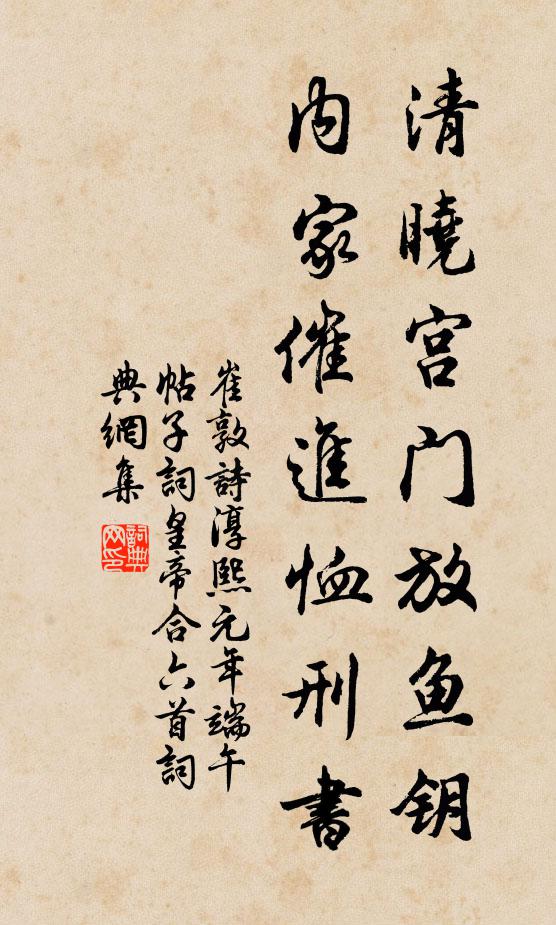 清曉宫门放鱼钥
内家催進恤刑書
崔敦詩淳熙元年端午
帖子詞皇帝合六首詞
典網集
詞典网印